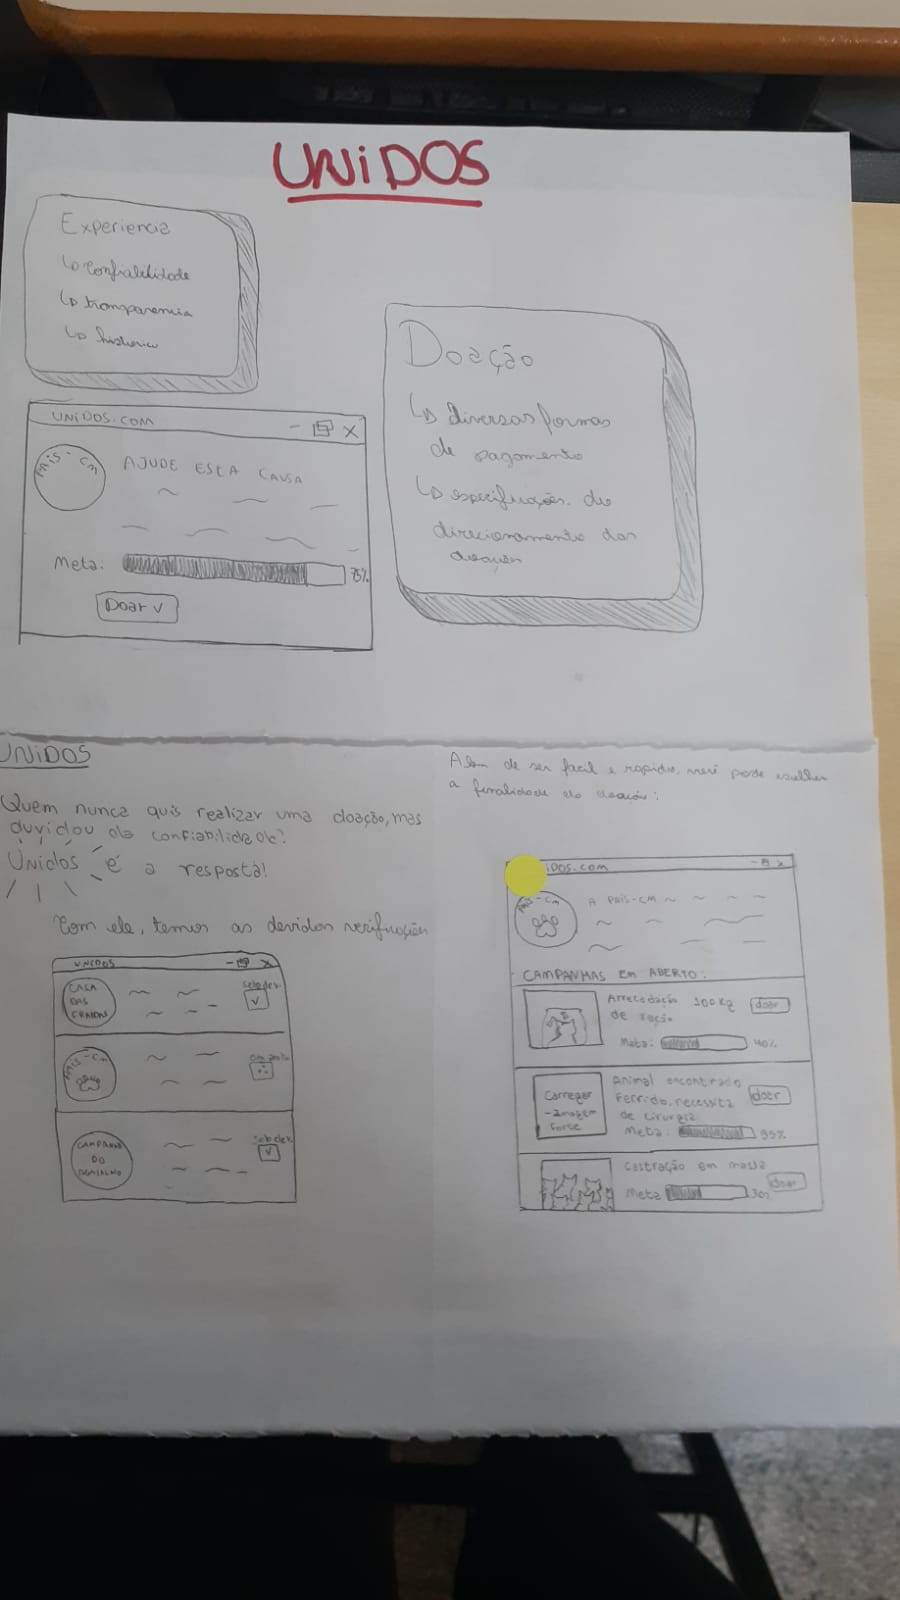 UNiDOS
Experiencia
↳ confiabilidade
↳ transparencia
↳ historico
UNiDOS.COM
PAIS-CM
AJUDE ESTA CAUSA
Meta:
75%
Doar ✓
Doação
↳ diversas formas
de pagamento
↳ especificações do
direcionamento das
doações
UNiDOS
Quem nunca quis realizar uma doação, mas
duvidou da confiabilidade?
Unidos é a resposta!
Com ele, temos as devidas verificações
UNIDOS
CASA
DAS
Selo de v.
PAIS-CM
CAMPANHA
DO
Selo de v.
Alem de ser facil e rapido, você pode escolher
a finalidade da doação:
iDOS.com
PAIS-CM
A PAIS-CM
CAMPANHAS Em ABERTO:
Arrecadação 300Kg
de ração
doar
Meta:
40%
Carregar
Animal encontrado
Ferido, necessita
de cirurgia
doar
Meta:
95%
Castração em massa
doar
Meta
30%